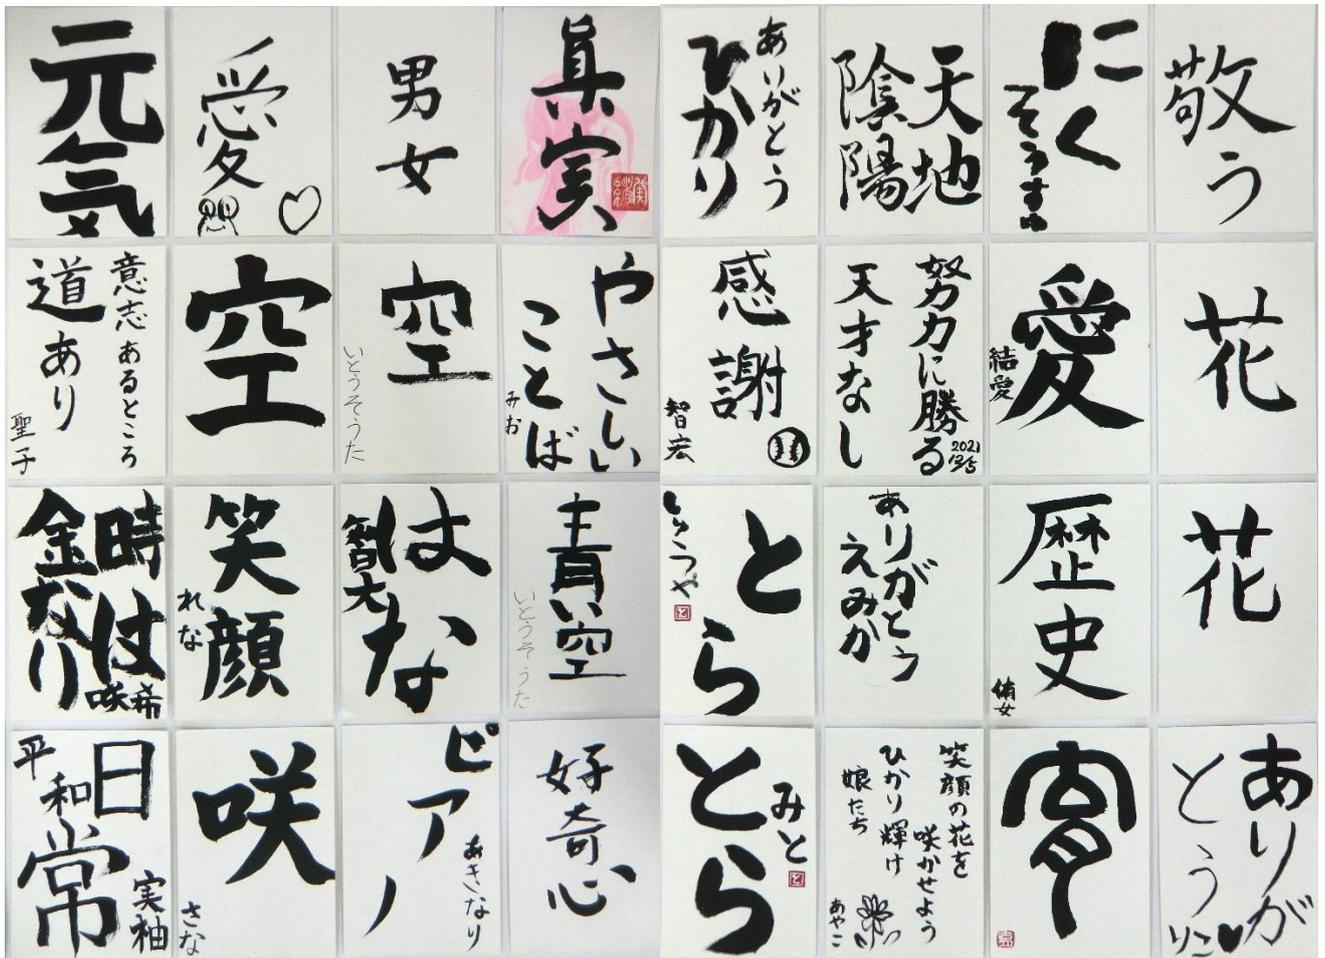 元気
愛
男女
真実
ありがとう
ひかり
天地
陰陽
にく
そうすけ
敬う
意志あるところ
道あり
聖子
空
空
いとうそうた
やさしい
ことば
みお
感謝
智宏
努力に勝る
天才なし
2021
12/5
愛
結愛
花
時は
金なり
咲希
笑顔
れな
はな
智大
青い空
いとうそうた
とら
ありがとう
えみか
歴史
侑女
花
日常
平和
実袖
咲
さな
ピアノ
あきいなり
好奇心
とら
みと
笑顔の花を
咲かせよう
ひかり輝け
娘たち
あやこ
ありが
とう
りこ